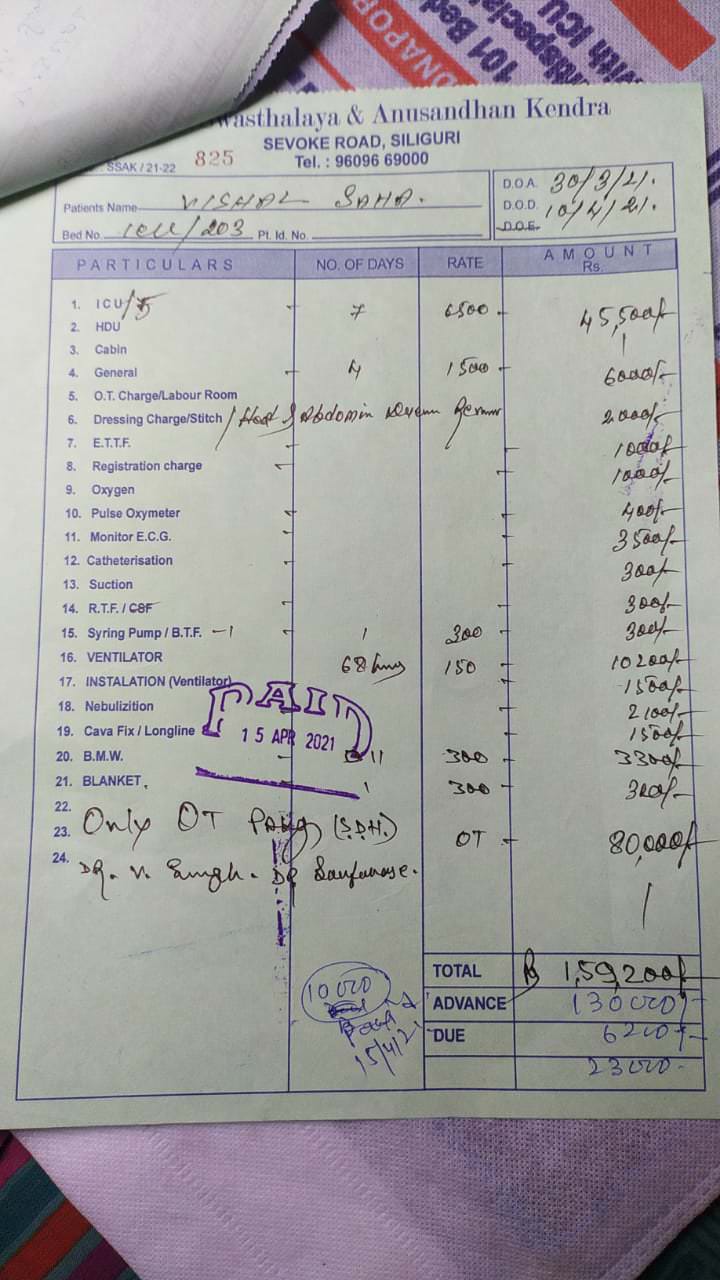 DNAPOR
101 Bed
with ICU
wasthalaya & Anusandhan Kendra
SEVOKE ROAD, SILIGURI
SSAK / 21-22 825 Tel. : 96096 69000
Patients Name VISHAL SAHA. D.O.A. 30/3/21.
D.O.D. 10/4/21.
Bed No. ICU/203 Pt. Id. No. D.O.E.
PARTICULARS NO. OF DAYS RATE AMOUNT Rs.
1. ICU/5 7 6500 45,500/-
2. HDU
3. Cabin
4. General 4 1500 6000/-
5. O.T. Charge/Labour Room
6. Dressing Charge/Stitch / & Abdomin 2000/-
7. E.T.T.F. 1000/-
8. Registration charge 1000/-
9. Oxygen
10. Pulse Oxymeter 400/-
11. Monitor E.C.G. 3500/-
12. Catheterisation 300/-
13. Suction
14. R.T.F. / CSF 300/-
15. Syring Pump / B.T.F. -1 1 300 300/-
16. VENTILATOR 68 150 10200/-
17. INSTALATION (Ventilator) 1500/-
18. Nebulizition 2100/-
19. Cava Fix / Longline 1500/-
PAID
15 APR 2021
20. B.M.W. 11 300 3300/-
21. BLANKET, 1 300 300/-
22.
23. Only OT (S.D.H.) OT 80,000/-
24. DR. N. Singh. DR
TOTAL 1,59,200/-
10000
15/4/21
ADVANCE 130000/-
DUE 6200/-
23000-